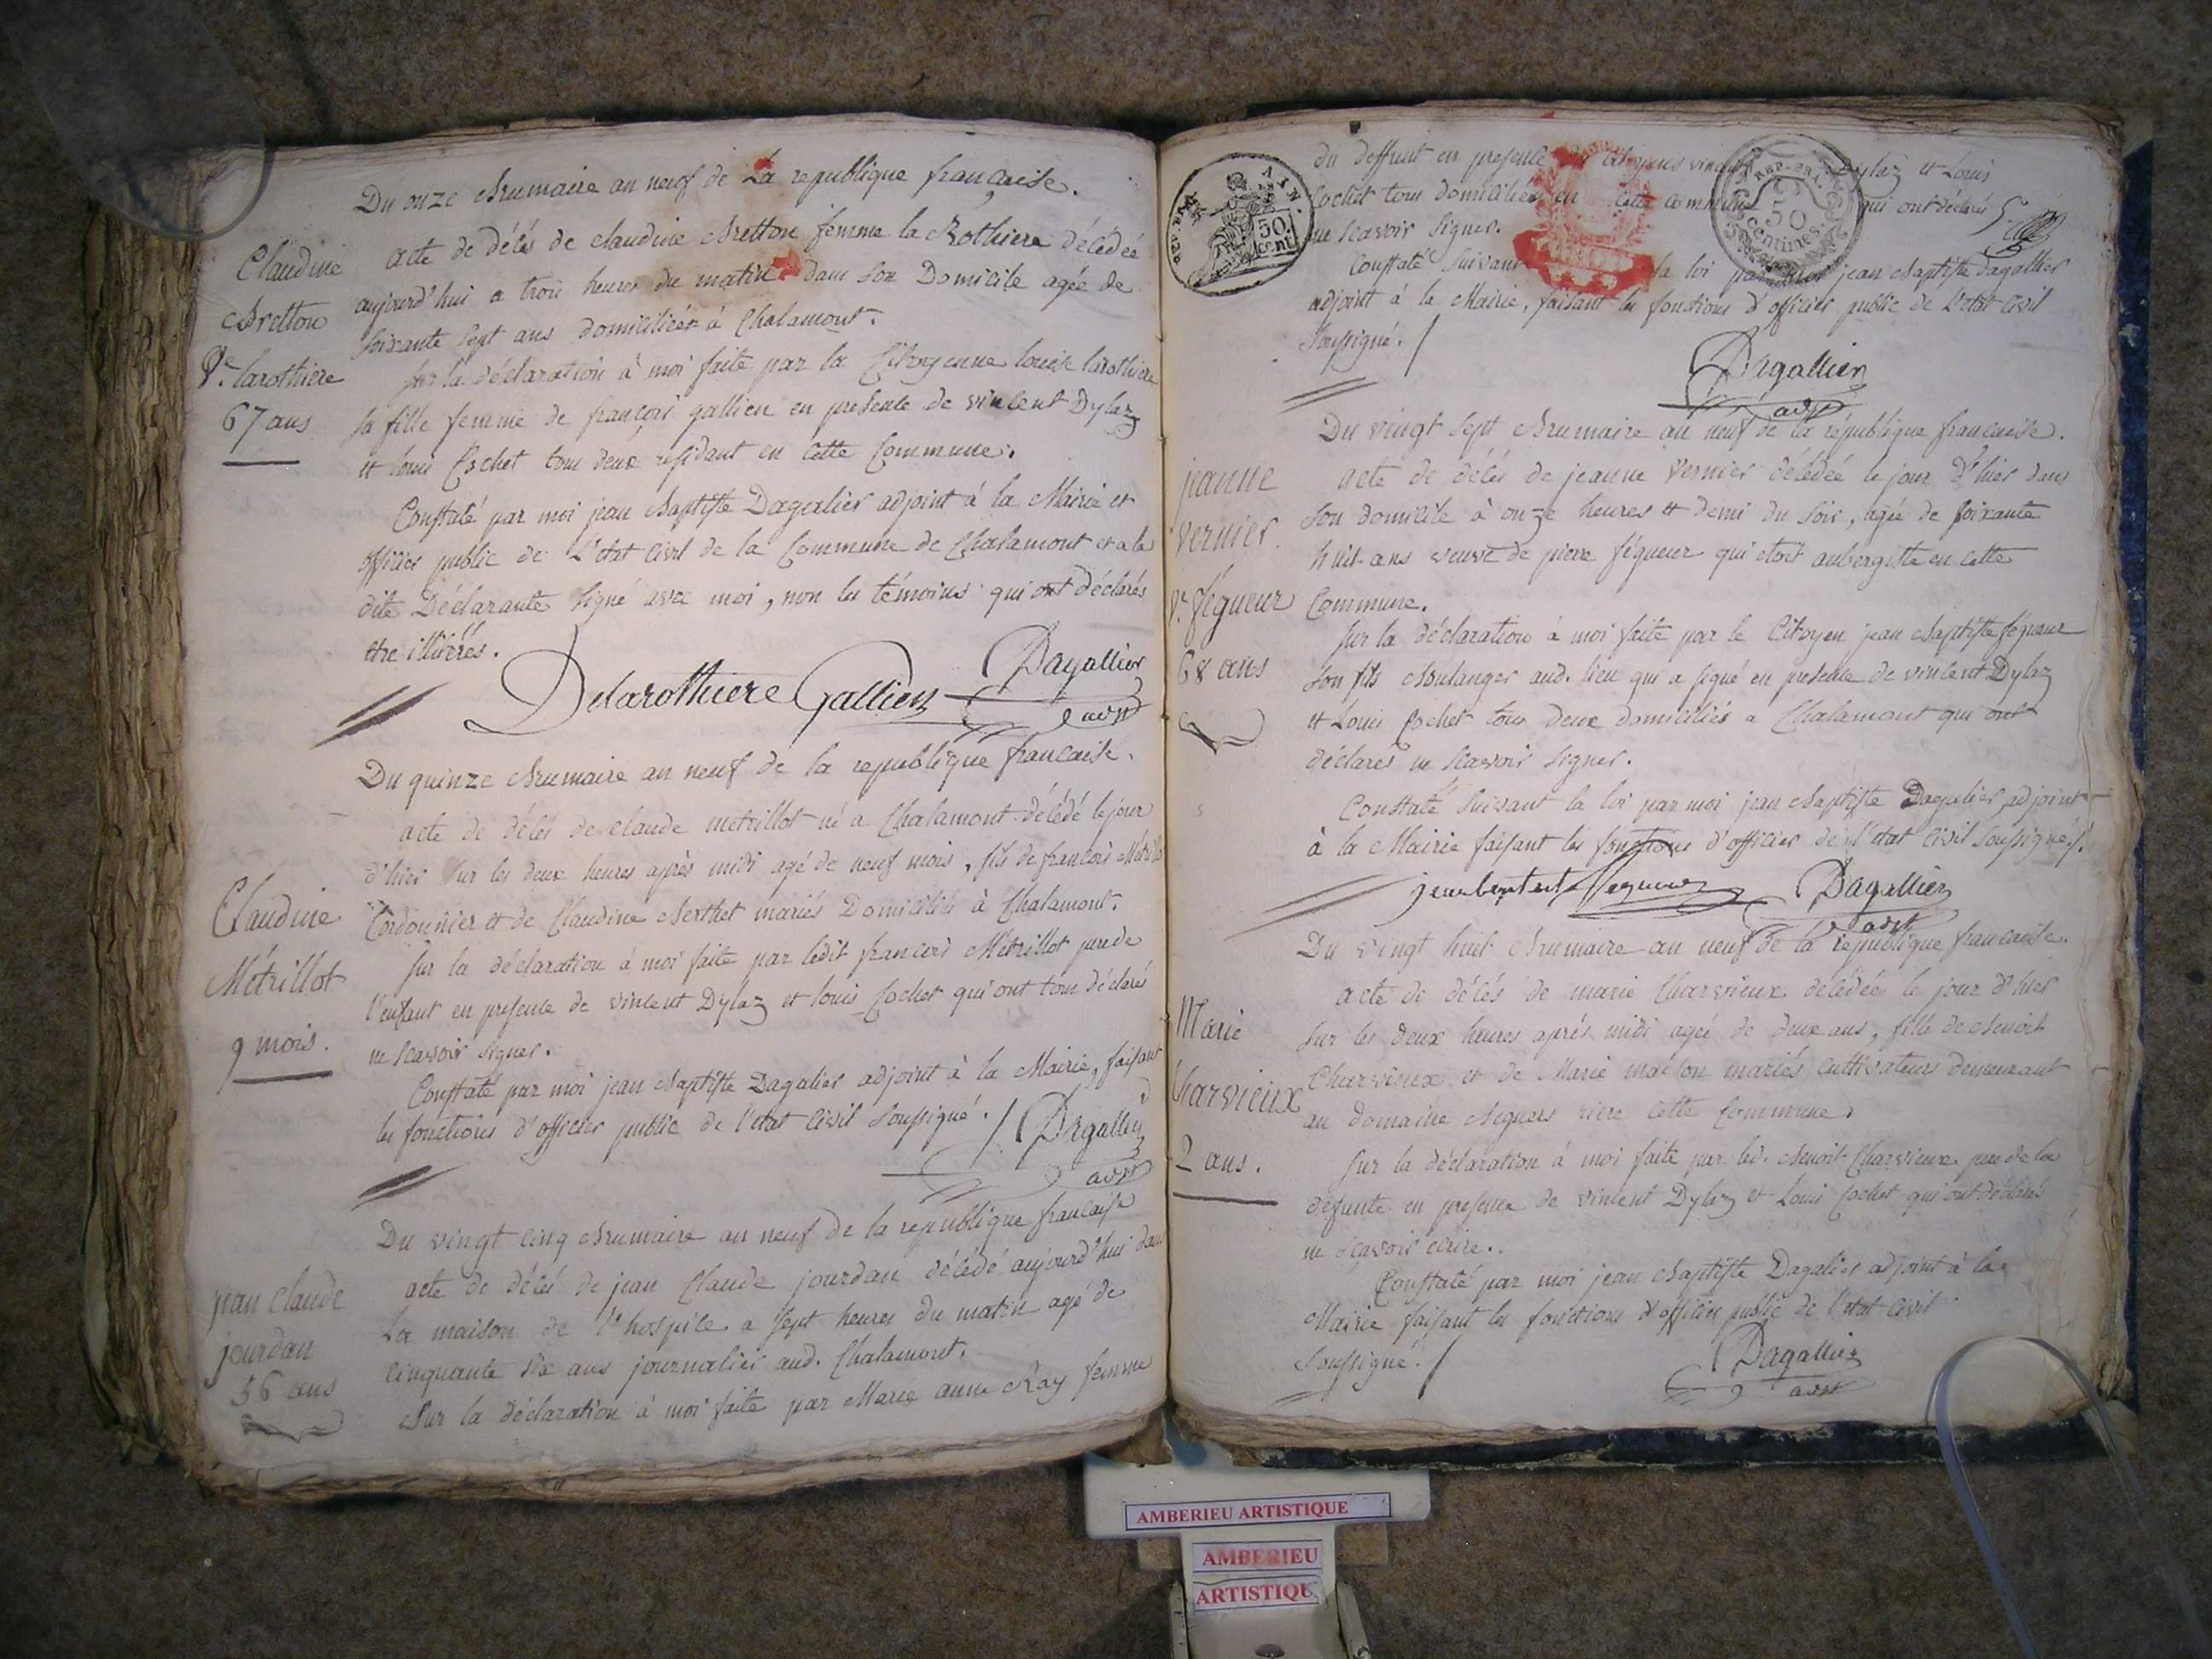 Du onze Brumaire an neuf de La republique française.
Claudine
Bretton
Ve. larothiere
67 ans
acte de décés de claudine Bretton femme la Rothiere décédeé
aujourd'hui a trois heures du matin dans son Domicile agée de
soixante sept ans domiciliceé à Chalamont.
sur la déclaration à moi faite par la Citoyenne louise larothiere
sa fille femme de françois gallien en presence de vincent Dylaz
et louis Cochet tous deux résidant en cette Commune.
Constaté par moi jean Baptiste Dagalier adjoint à la Mairie et
officier public de L'etat Civil de la Commune de Chalamont et a la
dite Déclarante signé avec moi, non les témoins qui ont déclarés
etre illitérés.
Delarothiere Gallien
Dagallier
adjt
Du quinze Brumaire an neuf de la republique francaise.
Claudine
Métrillot
9 mois.
acte de décés de claude metrillot né a Chalamont décédé le jour
d'hier sur les deux heures après midi agé de neuf mois, fils de francois Métrillot
Cordonnier et de Claudine Berthet mariés Domiciliés à Chalamont.
sur la déclaration à moi faite par ledit francois Métrillot pere de
l'enfant en presence de vincent Dylaz et louis Cochet qui ont tous déclarés
ne scavoir signer.
Constaté par moi jean Baptiste Dagalier adjoint à la Mairie, faisant
les fonctions d'officier public de l'etat Civil soussigné. /
Dagallier
adjt
Du vingt cinq Brumaire an neuf de la republique francaise
jean Claude
jourdan
56 ans
acte de décés de jean Claude jourdan décédé aujourd'hui dans
La maison de l'hospice a sept heures du matin agé de
cinquante six ans journalier aud. Chalamont.
Sur la déclaration à moi faite par Marie anne Ray femme
REP. FRA.
AYN.
50
cent
REP. FRA.
50
Centimes.
du deffunt en presence citoyens vincent Dylaz et Louis
Cochet tous domiciliés en cette commune qui ont déclarés
ne scavoir signer.
Constaté suivant la loi par moi jean Baptiste Dagallier
adjoint à la Mairie, faisant les fonctions d'officier public de l'etat Civil
soussigné. /
Dagallier
adjt
Du vingt sept Brumaire an neuf de la république francaise.
jeanne
vernier.
Ve. fégueur
68 ans
acte de décés de jeanne Vernier décédeé le jour d'hier dans
son domicile à onze heures et demi du soir, agée de soixante
huit ans veuve de piere fégueur qui etoit aubergiste en cette
Commune.
sur la déclaration à moi faite par le Citoyen jean Baptiste fégueur
son fils Boulanger aud. lieu qui a signé en presence de vincent Dylaz
et Louis Cochet tous deux domiciliés a Chalamont qui ont
déclarés ne scavoir signer.
Constaté suivant la loi par moi jean Baptiste Dagalier adjoint
à la Mairie faisant les fonctions d'officier de l'etat Civil soussigné /.
Dagallier
adjt
Du vingt huit Brumaire an neuf de la republique francaise.
Marie
Charvieux
2 ans.
acte de décés de marie Charvieux décédée le jour d'hier
sur les deux heures aprés midi ageé de deux ans, fille de Benoit
Charvieux et de Marie maison mariés cultivateurs demeurant
au domaine riere cette Commune.
sur la déclaration à moi faite par led. Benoit Charvieux pere de la
défunte en presence de vincent Dylaz et Louis Cochet qui ont déclarés
ne scavoir écrire.
Constaté par moi jean Baptiste Dagalier adjoint à la
Mairie faisant les fonctions d'officier public de l'etat Civil
soussigné. /
Dagallier
adjt
AMBERIEU ARTISTIQUE
AMBERIEU
ARTISTIQU